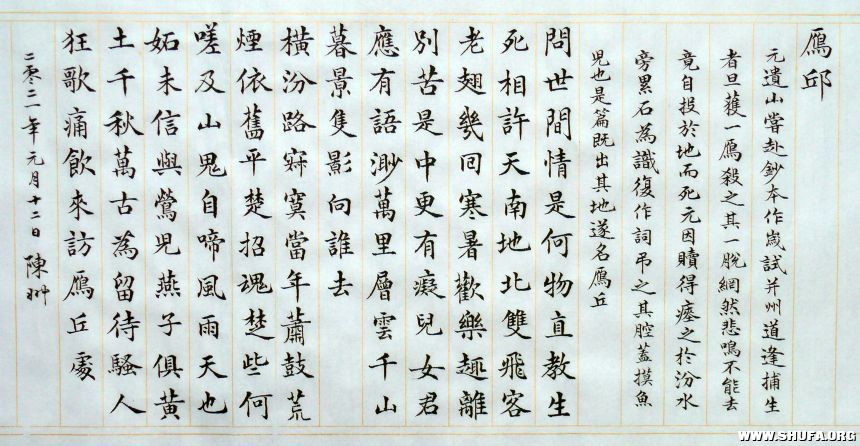 鴈邱
元遺山嘗赴鈔本作歲試并州道逢捕生
者旦獲一鴈殺之其一脫網然悲鳴不能去
竟自投於地而死元因贖得瘞之於汾水
旁累石為識復作詞吊之其腔蓋摸魚
兒也是篇既出其地遂名鴈丘
問世間情是何物直教生
死相許天南地北雙飛客
老翅幾回寒暑歡樂趣離
別苦是中更有癡兒女君
應有語渺萬里層雲千山
暮景隻影向誰去
橫汾路寂寞當年蕭鼓荒
煙依舊平楚招魂楚些何
嗟及山鬼自啼風雨天也
妬未信與鶯兒燕子俱黃
土千秋萬古為留待騷人
狂歌痛飲來訪鴈丘處
二零二一年元月十二日 陳
WWW.SHUFA.ORG